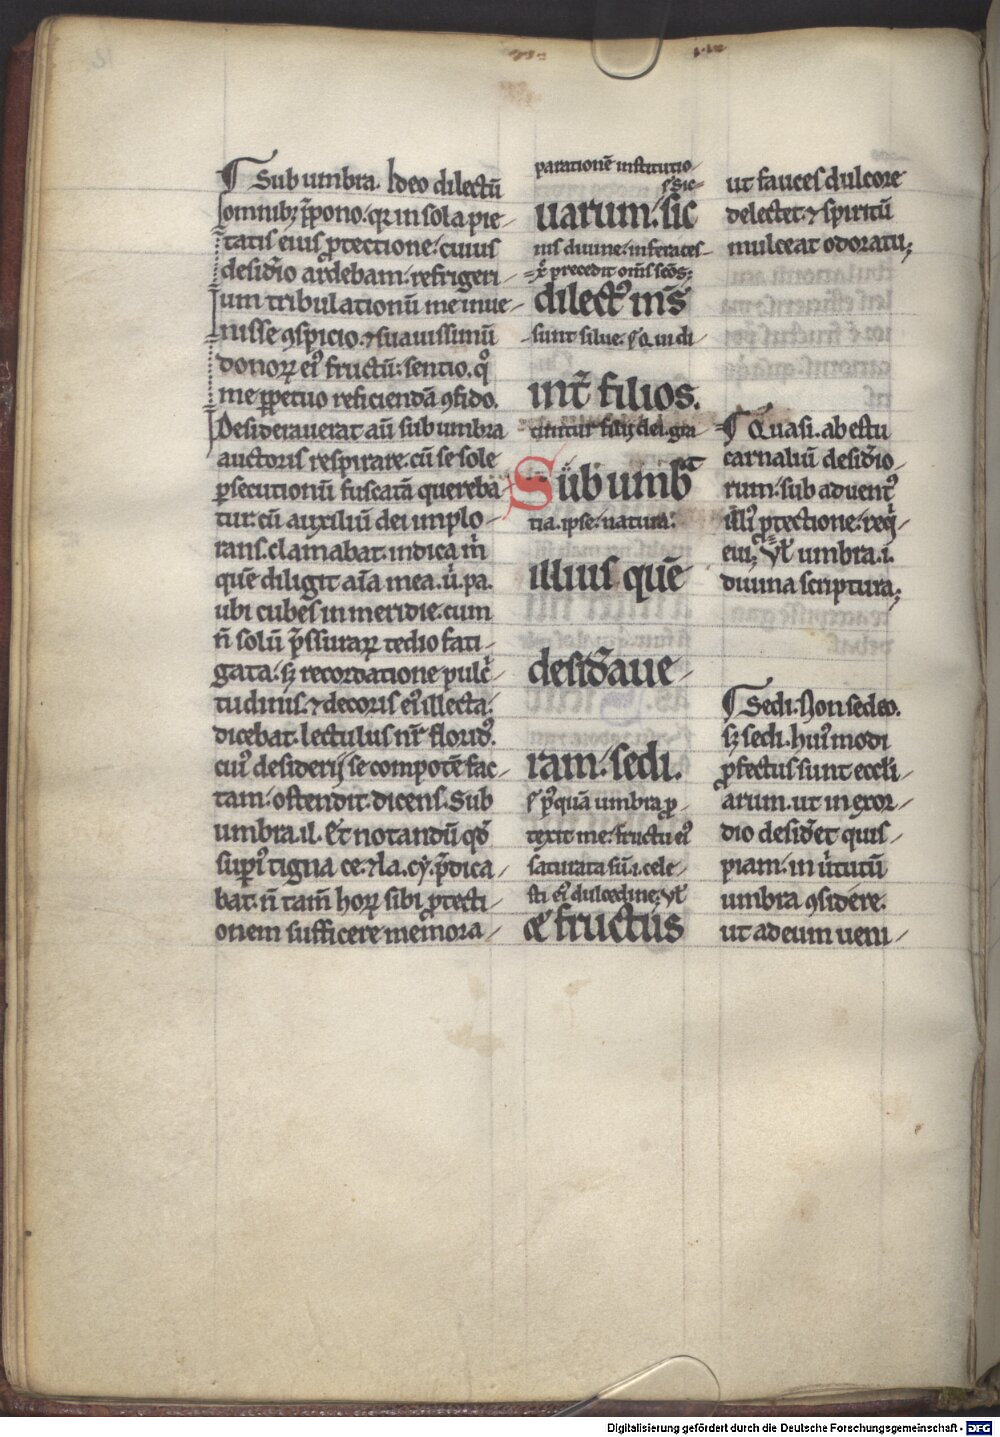 ¶ Sub umbra. Ideo dilectū
omnibꝫ p̄pono. qꝛ in sola pie-
tatis eius ꝓtectione. cuius
desid̄io ardebam. refrigeri-
um tribulationū me inue-
nisse ꝯspicio. ⁊ suauissimū
donoꝝ eiꝰ fructū. sentio. q̊
me ꝑpetuo reficiendā ꝯfido.
Desiderauerat aū sub umbra
auctoris respirare. cū se sole
ꝑsecutionū fuscatā quereba-
tur. cū auxiliū dei implo-
rans. clamabat. indica ṁ
quē diligit aīa mea. u̇. pa.
ubi cubes in meridie. cum
n̄ solū p̄ssuraꝝ tedio fati-
gata. sꝫ recordatione pulc̄-
tudinis. ⁊ decoris eiꝰ illecta.
dicebat. lectulus nr̄ floridꝰ.
cuiꝰ desiderij se compotē fac-
tam. ostendit. dicens. Sub
umbra. il. Et notandū qd̄
suꝑiꝰ tigna ce. ⁊ la. cy. p̄dica-
bat. n̄ tam̄ hoꝝ sibi ꝓtecti-
onem sufficere memora-
parationē institutio-
uarum. sic
nis diuine. inferaces-
xp̄c precedit om̄s sc̄os;
dilectꝰ mꝰs
sunt silue. Qui di-
int̄ filios.
cuntur filij dei. gra-
Sub umb̄
tia. ipse. natura.
illius quē
desid̄aue-
ram. sedi.
pꝰquā umbra ꝓ-
texit me. fructu eiꝰ
saturata sū. i. cele-
sti eiꝰ dulcedine; Vl̄
⁊ fructus
ut fauces dulcore
delectet. ⁊ spiritū
mulceat odoratu;
¶ Quasi. ab estu
carnaliū desid̄io-
rum. sub aduentꝰ
illiꝰ ꝓtectione. req̇-
eui; Vl̄ umbra. i.
diuina scriptura;
¶ Sedi. Non sedeo.
sꝫ sedi. huiꝰmodi
ꝓfectus sunt eccl̄i-
arum. ut in exor-
dio desid̄et quis-
piam. in u̇tutū
umbra ꝯsidere.
ut ad eum ueni-
Digitalisierung gefördert durch die Deutsche Forschungsgemeinschaft - DFG